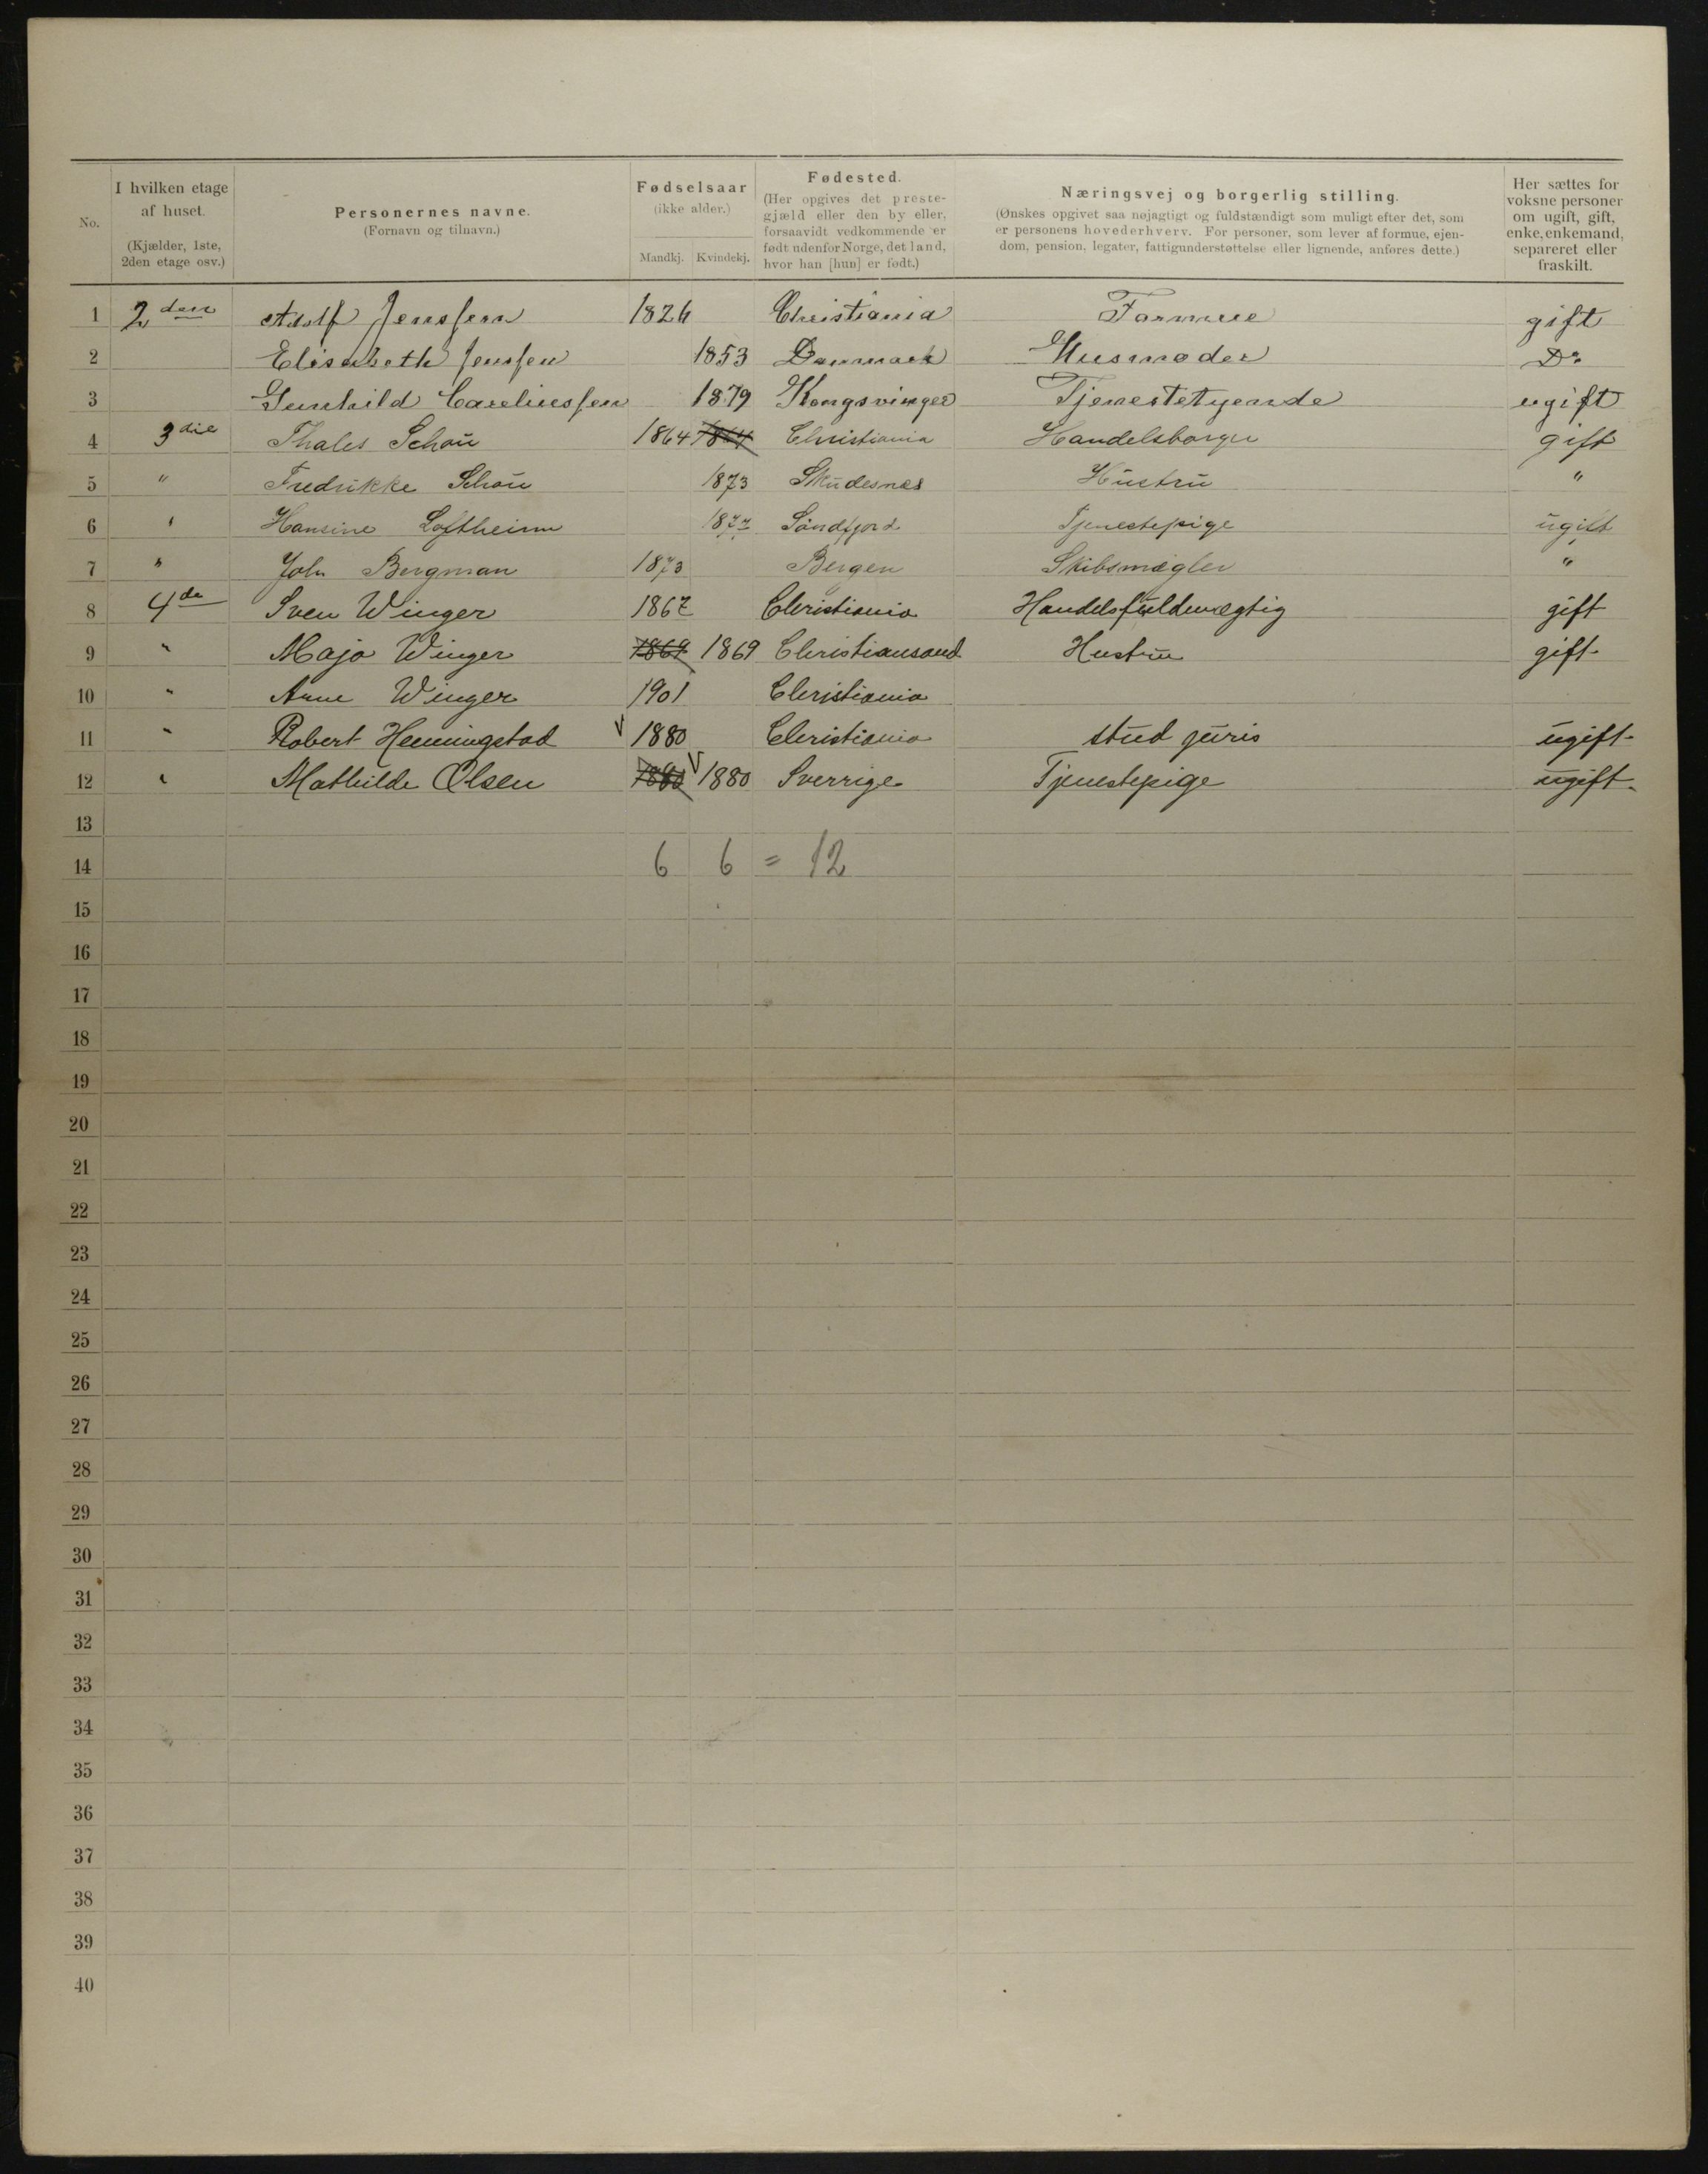 No.
I hvilken etage af huset. (Kjælder, 1ste, 2den etage osv.)
Personernes navne. (Fornavn og tilnavn.)
Fødselsaar (ikke alder.) Mandkj. Kvindekj.
Fødested. (Her opgives det prestegjæld eller den by eller, forsaavidt vedkommende er født udenfor Norge, det land, hvor han [hun] er født.)
Næringsvej og borgerlig stilling. (Ønskes opgivet saa nøjagtigt og fuldstændigt som muligt efter det, som er personens hovederhverv. For personer, som lever af formue, ejendom, pension, legater, fattigunderstøttelse eller lignende, anføres dette.)
Her sættes for voksne personer om ugift, gift, enke, enkemand, separeret eller fraskilt.
1 2den Adolf Jenssen 1826 Christiania Formue gift
2 Elisabeth Jenssen 1853 Danmark Husmoder Do
3 Gunhild Careliussen 1879 Kongsvinger Tjenestetyende ugift
4 3die Thales Schou 1864 1864 Christiania Handelsborger gift
5 " Fredrikke Schou 1873 Skudesnes Hustru "
6 " Hansine Loftheim 1877 Søndfjord Tjenestepige ugift
7 " John Bergman 1873 Bergen Skibsmægler "
8 4de Sven Winger 1867 Christiania Handelsfuldmægtig gift
9 " Maja Winger 1869 1869 Christiansand Hustru gift
10 " Arne Winger 1901 Christiania
11 " Robert Henningstad 1880 Christiania stud juris ugift
12 " Mathilde Olsen 1880 1880 Sverrige Tjenestepige ugift.
13
14 6 6 = 12
15
16
17
18
19
20
21
22
23
24
25
26
27
28
29
30
31
32
33
34
35
36
37
38
39
40